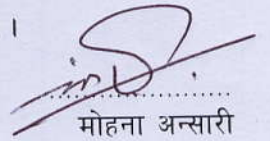 ।
मोहना अन्सारी